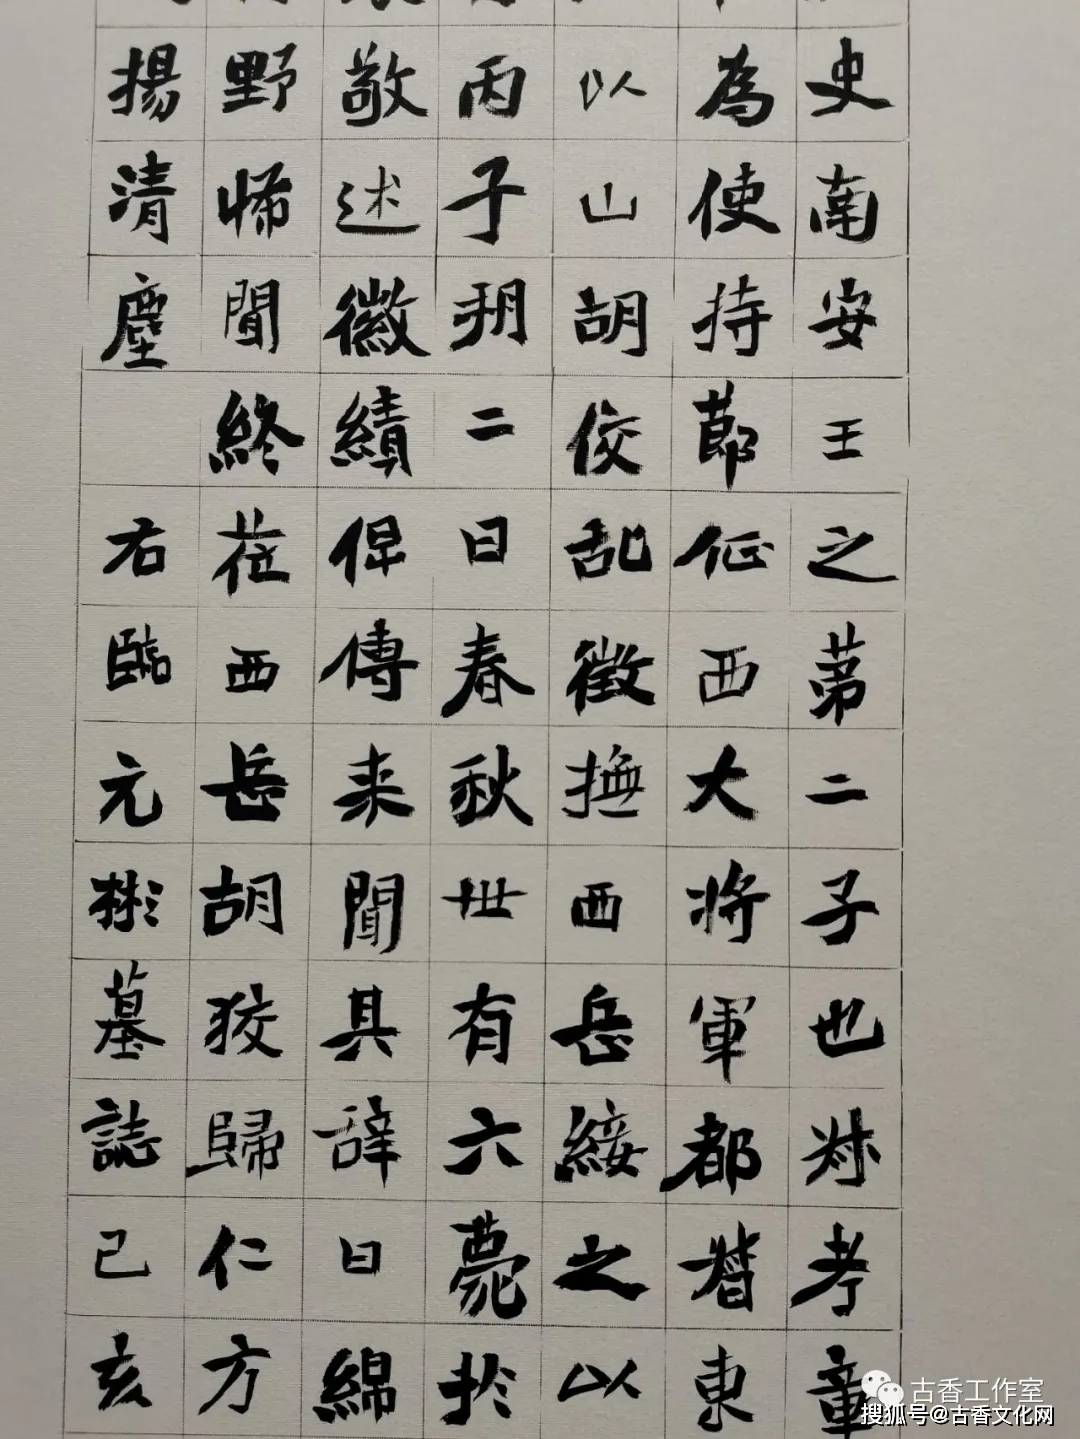 史南安王之第二子也叔考章
為使持節征西大將軍都督東
以山胡佼乱徵撫西岳綏之以
丙子朔二日春秋卅有六薨於
敬述徽績俾傳来聞其辞曰綿
野悕聞終莅西岳胡狡歸仁方
揚清塵
右臨元彬墓誌己亥
古香工作室
搜狐号@古香文化网